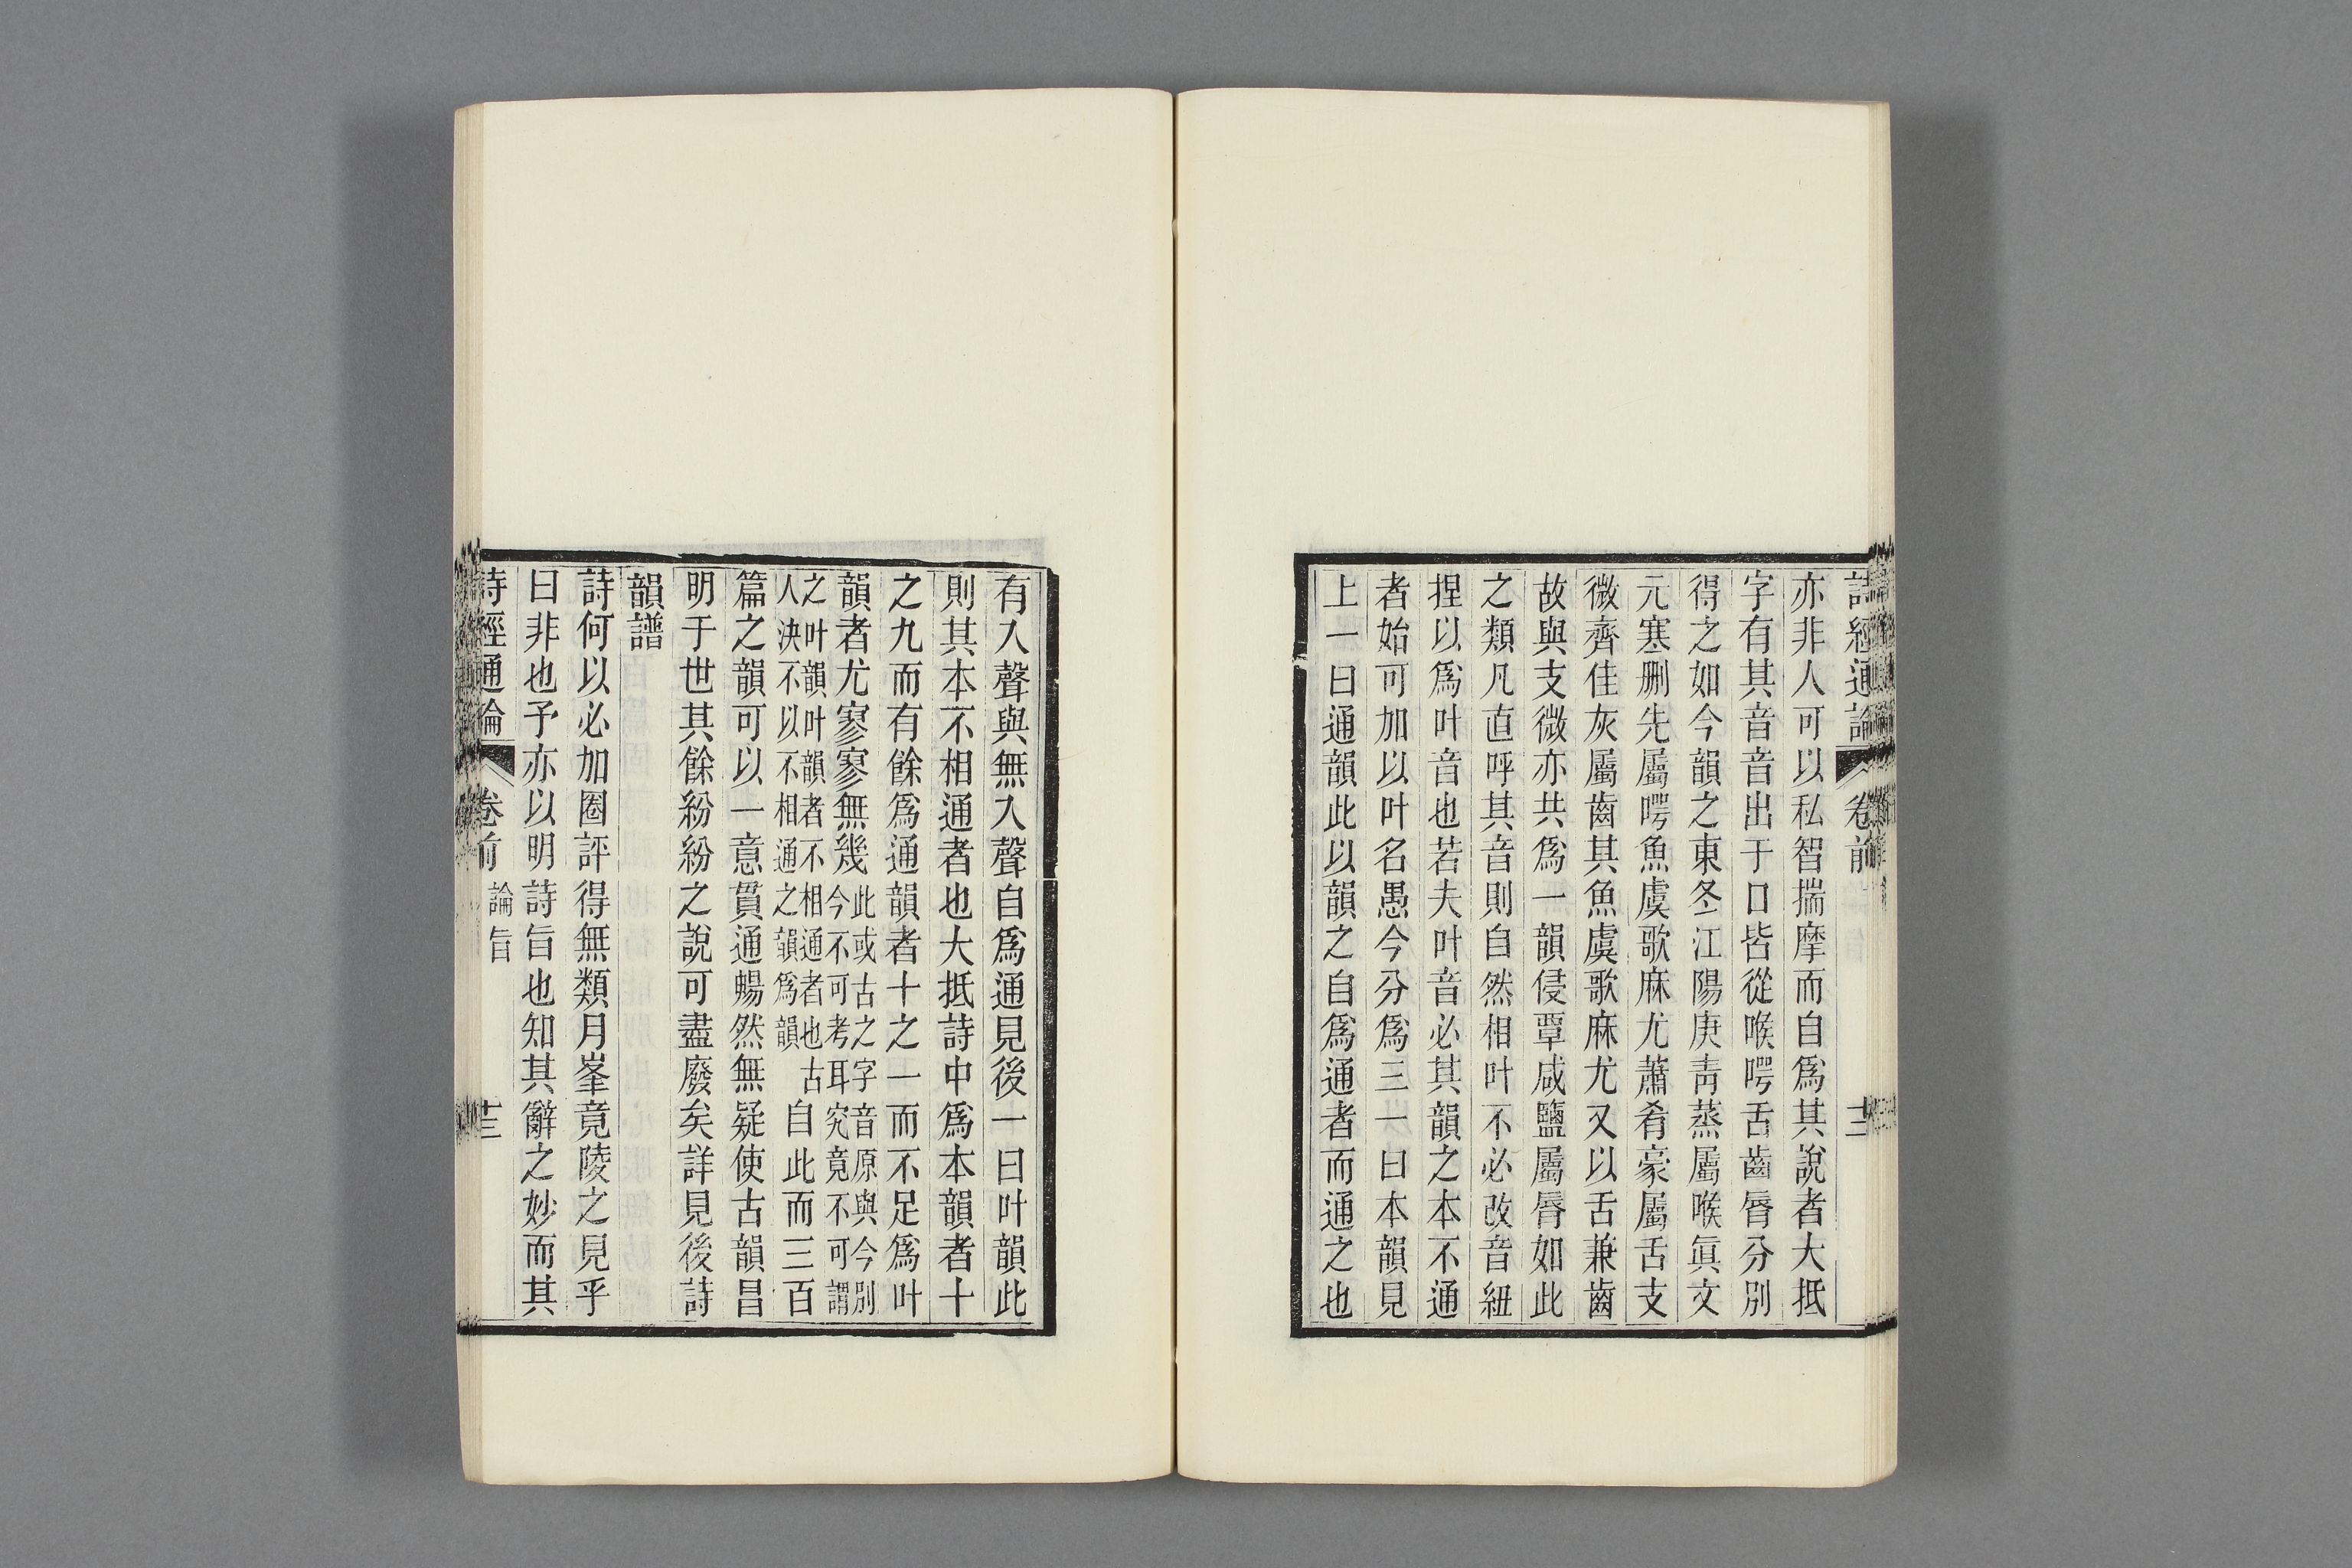 詩經通論 卷前 十二
亦非人可以私智揣摩而自爲其說者大抵
字有其音音出于口皆從喉咢舌齒脣分別
得之如今韻之東冬江陽庚靑蒸屬喉眞文
元寒刪先屬咢魚虞歌麻尤蕭肴豪屬舌支
微齊佳灰屬齒其魚虞歌麻尤又以舌兼齒
故與支微亦共爲一韻侵覃咸鹽屬脣如此
之類凡直呼其音則自然相叶不必改音紐
捏以爲叶音也若夫叶音必其韻之本不通
者始可加以叶名愚今分爲三一曰本韻見
上一曰通韻此以韻之自爲通者而通之也
有入聲與無入聲自爲通見後一曰叶韻此
則其本不相通者也大抵詩中爲本韻者十
之九而有餘爲通韻者十之一而不足爲叶
韻者尤寥寥無幾此或古之字音原與今別
今不可考耳究竟不可謂
之叶韻叶韻者不相通者也古
人決不以不相通之韻爲韻自此而三百
篇之韻可以一意貫通暢然無疑使古韻昌
明于世其餘紛紛之說可盡廢矣詳見後詩
韻譜
詩何以必加圈評得無類月峯竟陵之見乎
曰非也予亦以明詩旨也知其辭之妙而其
詩經通論 卷前 論旨 十三